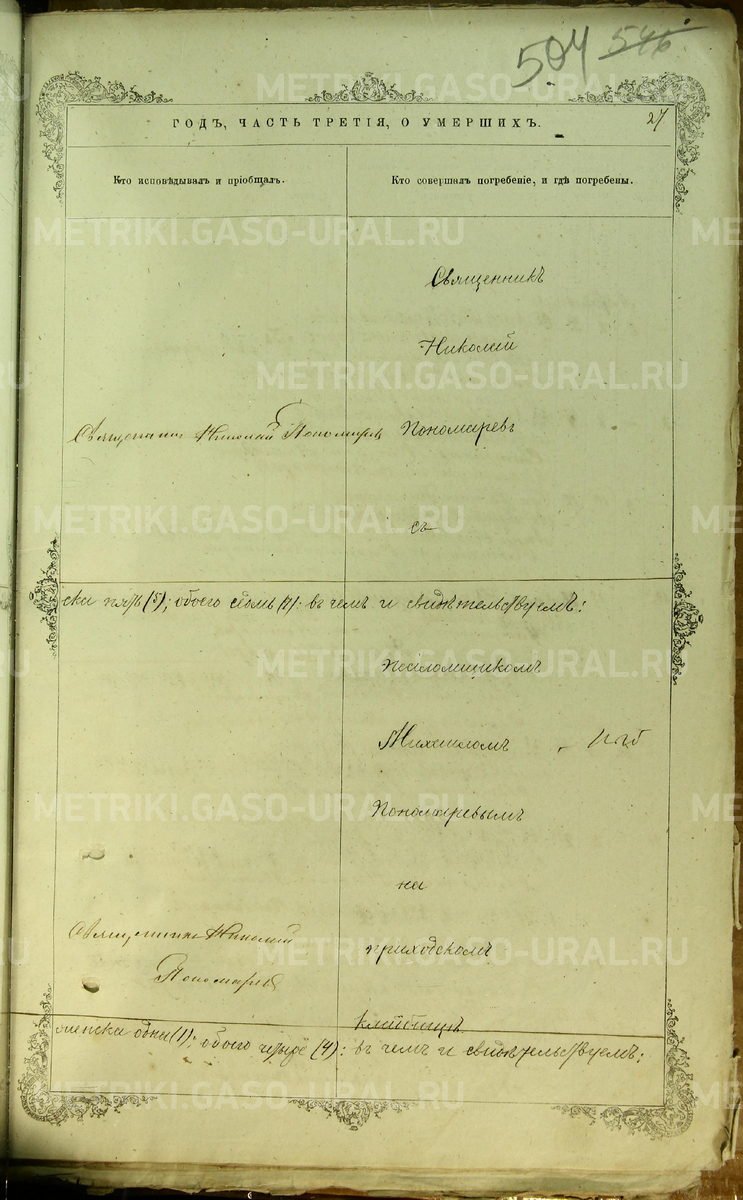 504 546
ГОДЪ, ЧАСТЬ ТРЕТІЯ, О УМЕРШИХЪ.
27
Кто исповѣдывалъ и пріобщалъ.
Кто совершалъ погребеніе, и гдѣ погребены.
Священникъ
Николай
Священникъ Николай Пономаревъ
Пономаревъ
съ
ски пять (5); обоего семь (7): въ чемъ и свидѣтельствуемъ:
Псаломщикомъ
Михаиломъ
Пономаревымъ
на
Священникъ Николай
Пономаревъ
приходскомъ
кладбищѣ
женска одна (1); обоего четыре (4): въ чемъ и свидѣтельствуемъ:
METRIKI.GASO-URAL.RU